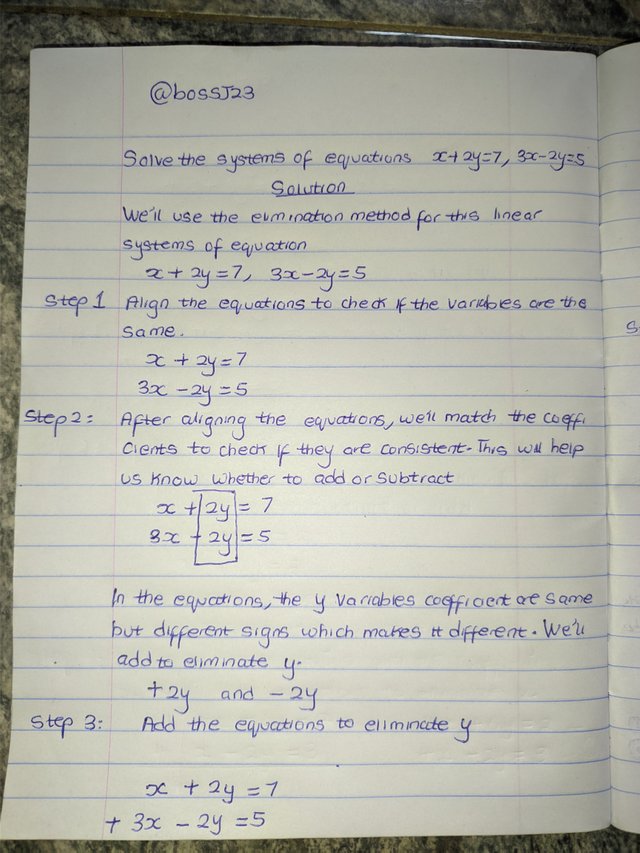 @bossJ23
Solve the systems of equations x+2y=7, 3x-2y=5
Solution
We'll use the elimination method for this linear
systems of equation
x + 2y = 7, 3x-2y=5
Step 1 Align the equations to check if the variables are the
same.
x + 2y = 7
3x - 2y = 5
Step 2: After aligning the equations, we'll match the coeffi
cients to check if they are consistent. This will help
us know whether to add or subtract
x + 2y = 7
3x - 2y = 5
In the equations, the y variables coefficient are same
but different signs which makes it different. We'll
add to eliminate y.
+2y and -2y
Step 3: Add the equations to eliminate y
x + 2y = 7
+ 3x - 2y = 5